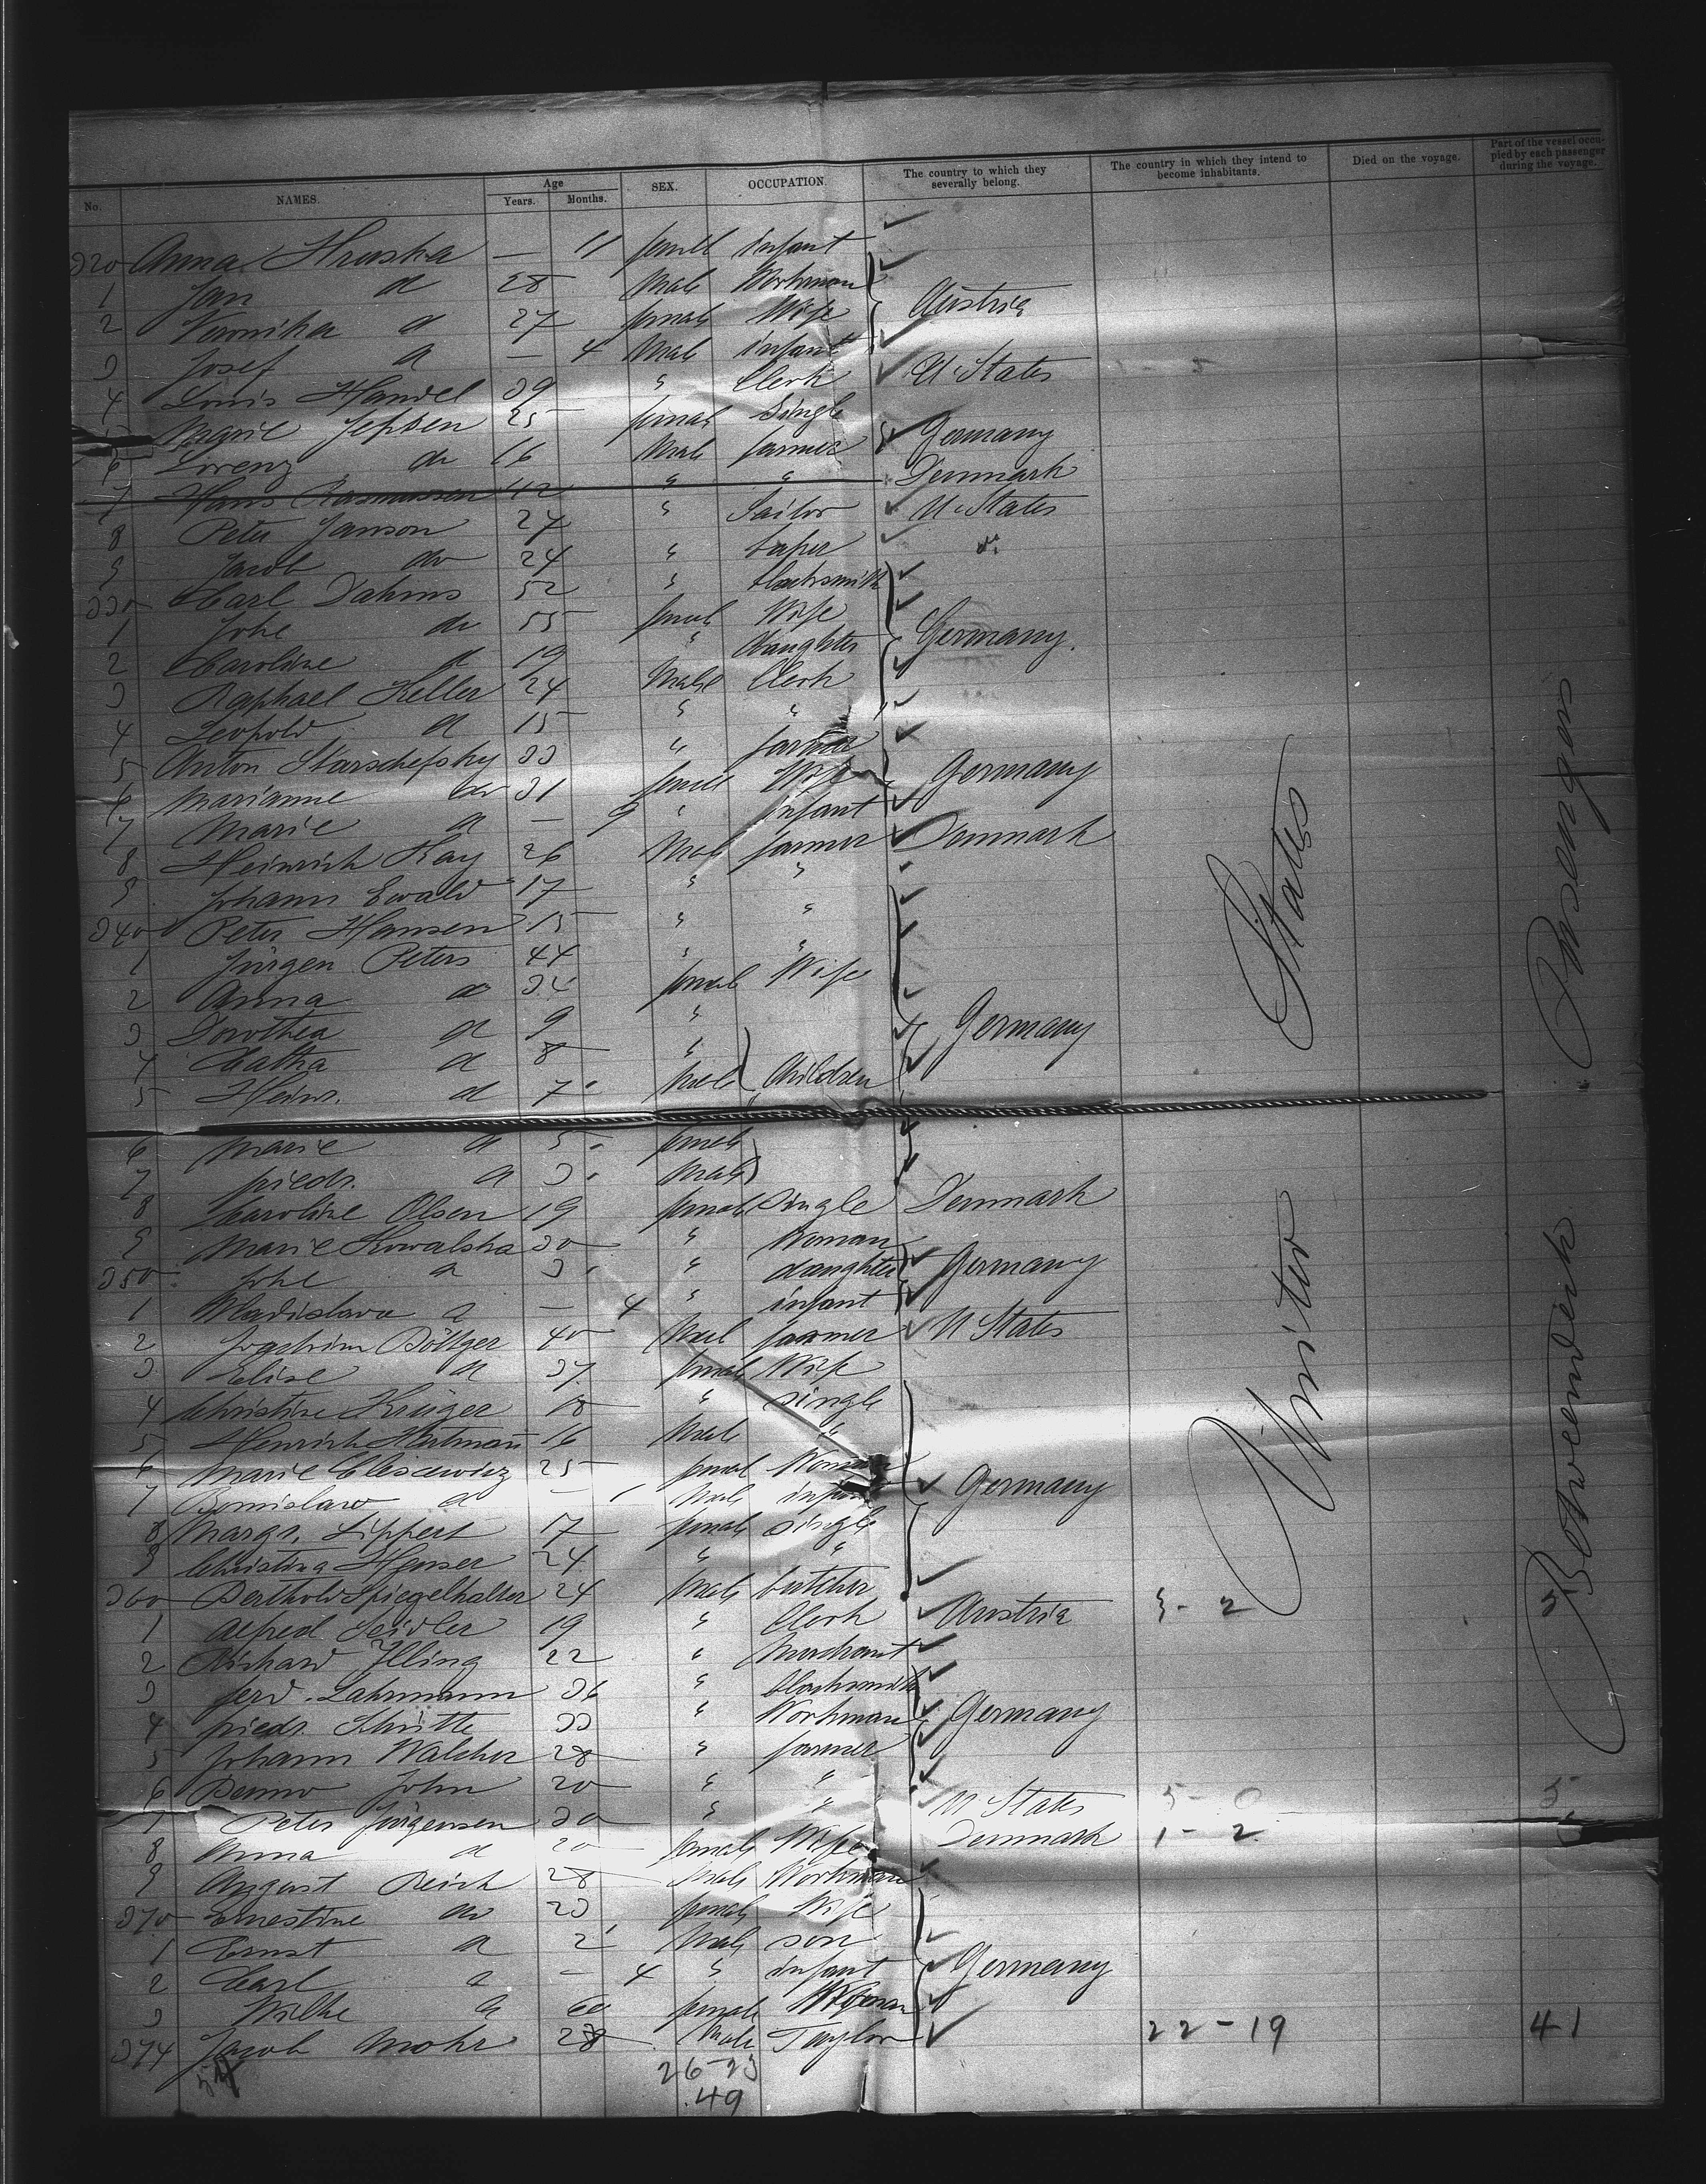 No. NAMES. Age Years. Months. SEX. OCCUPATION. The country to which they severally belong. The country in which they intend to become inhabitants. Died on the voyage. Part of the vessel occupied by each passenger during the voyage.
320 Anna Hruska — 11 female infant
1 Jan d 28 Male Workman
2 Veronika d 27 female Wife Austria
3 Josef d — 4 Male infant
4 Louis Handel 39 " Clerk U States
5 Marie Jepsen 25 female Single
6 Lorenz do 16 Male farmer Germany
7 Hans Rasmussen 42 " " Denmark
8 Peter Janson 27 " Sailor U States
9 Jacob do 24 " do
330 Carl Dahms 52 " blacksmith
1 Joh do 55 female Wife
2 Caroline d 19 " daughter Germany.
3 Raphael Keller 24 Male Clerk
4 Leopold d 15 " "
5 Anton Starschefsky 33 "
6 Marianne do 31 female Wife Germany
7 Marie d — 9 " infant
8 Heinrich Kay 26 Male farmer Denmark
9 Johann Ewald 17 " "
340 Peter Hansen 15 " "
1 Jürgen Peters 44 " "
2 Anna do 34 female Wife
3 Dorothea d 9 " Germany
4 Catha d 8 "
5 Heinr. d 7 Male Children
6 Marie d 5 female
7 friedr. d 3 Male
8 Caroline Olsen 19 female Single Denmark
9 Marie Kowalska 30 " Woman
350 Joh d 3 " daughter Germany
1 Wladislawa d — 4 " infant
2 Joachim Böttger 40 Male farmer U States
3 Elise d 37 female Wife
4 Christine Krüger 18 " single
5 Henrich Hartmann 16 Male "
6 Marie 25 female Woman Germany
7 Bornislaw d — 1 Male infant
8 Margr. Lippert 17 female single
9 Christina Heuser 24 " "
360 Berthold Spiegelhalter 24 Male butcher
1 Alfred Seidler 19 " Clerk Austria 3 - 2 5
2 Richard Illing 22 " Merchant
3 ferd. Lahrmann 36 " blacksmith
4 friedr. Schütte 33 " Workman Germany
5 Johann Walcher 28 " farmer
6 Benno John 20 " "
7 Peter Jürgensen 30 " " U States 5 - 0 5
8 Anna d 20 female Wife Denmark 1 - 2
9 August Reich 28 Male Workman
370 Ernestine do 23 female Wife
1 Ernst d 2 Male son
2 Carl d — 4 " infant Germany
3 Wilhe d 60 female Woman
374 Jacob Mohr 28 Male Taylor 22 - 19 41
26-23
49
United States
Betweendeck Passengers